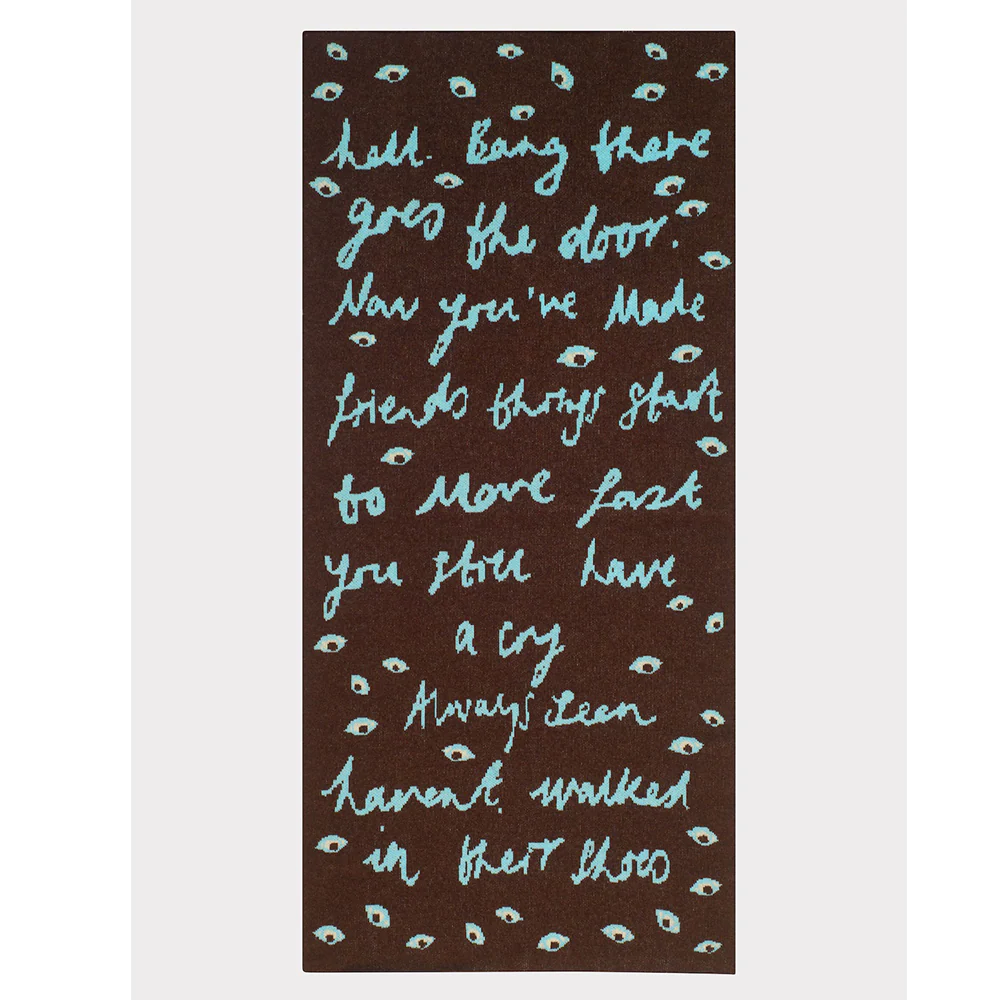 hell. Bang there
goes the door.
Now you've Made
friends things start
to Move fast
you still have
a cry
Always Seen
havent. walked
in their shoes